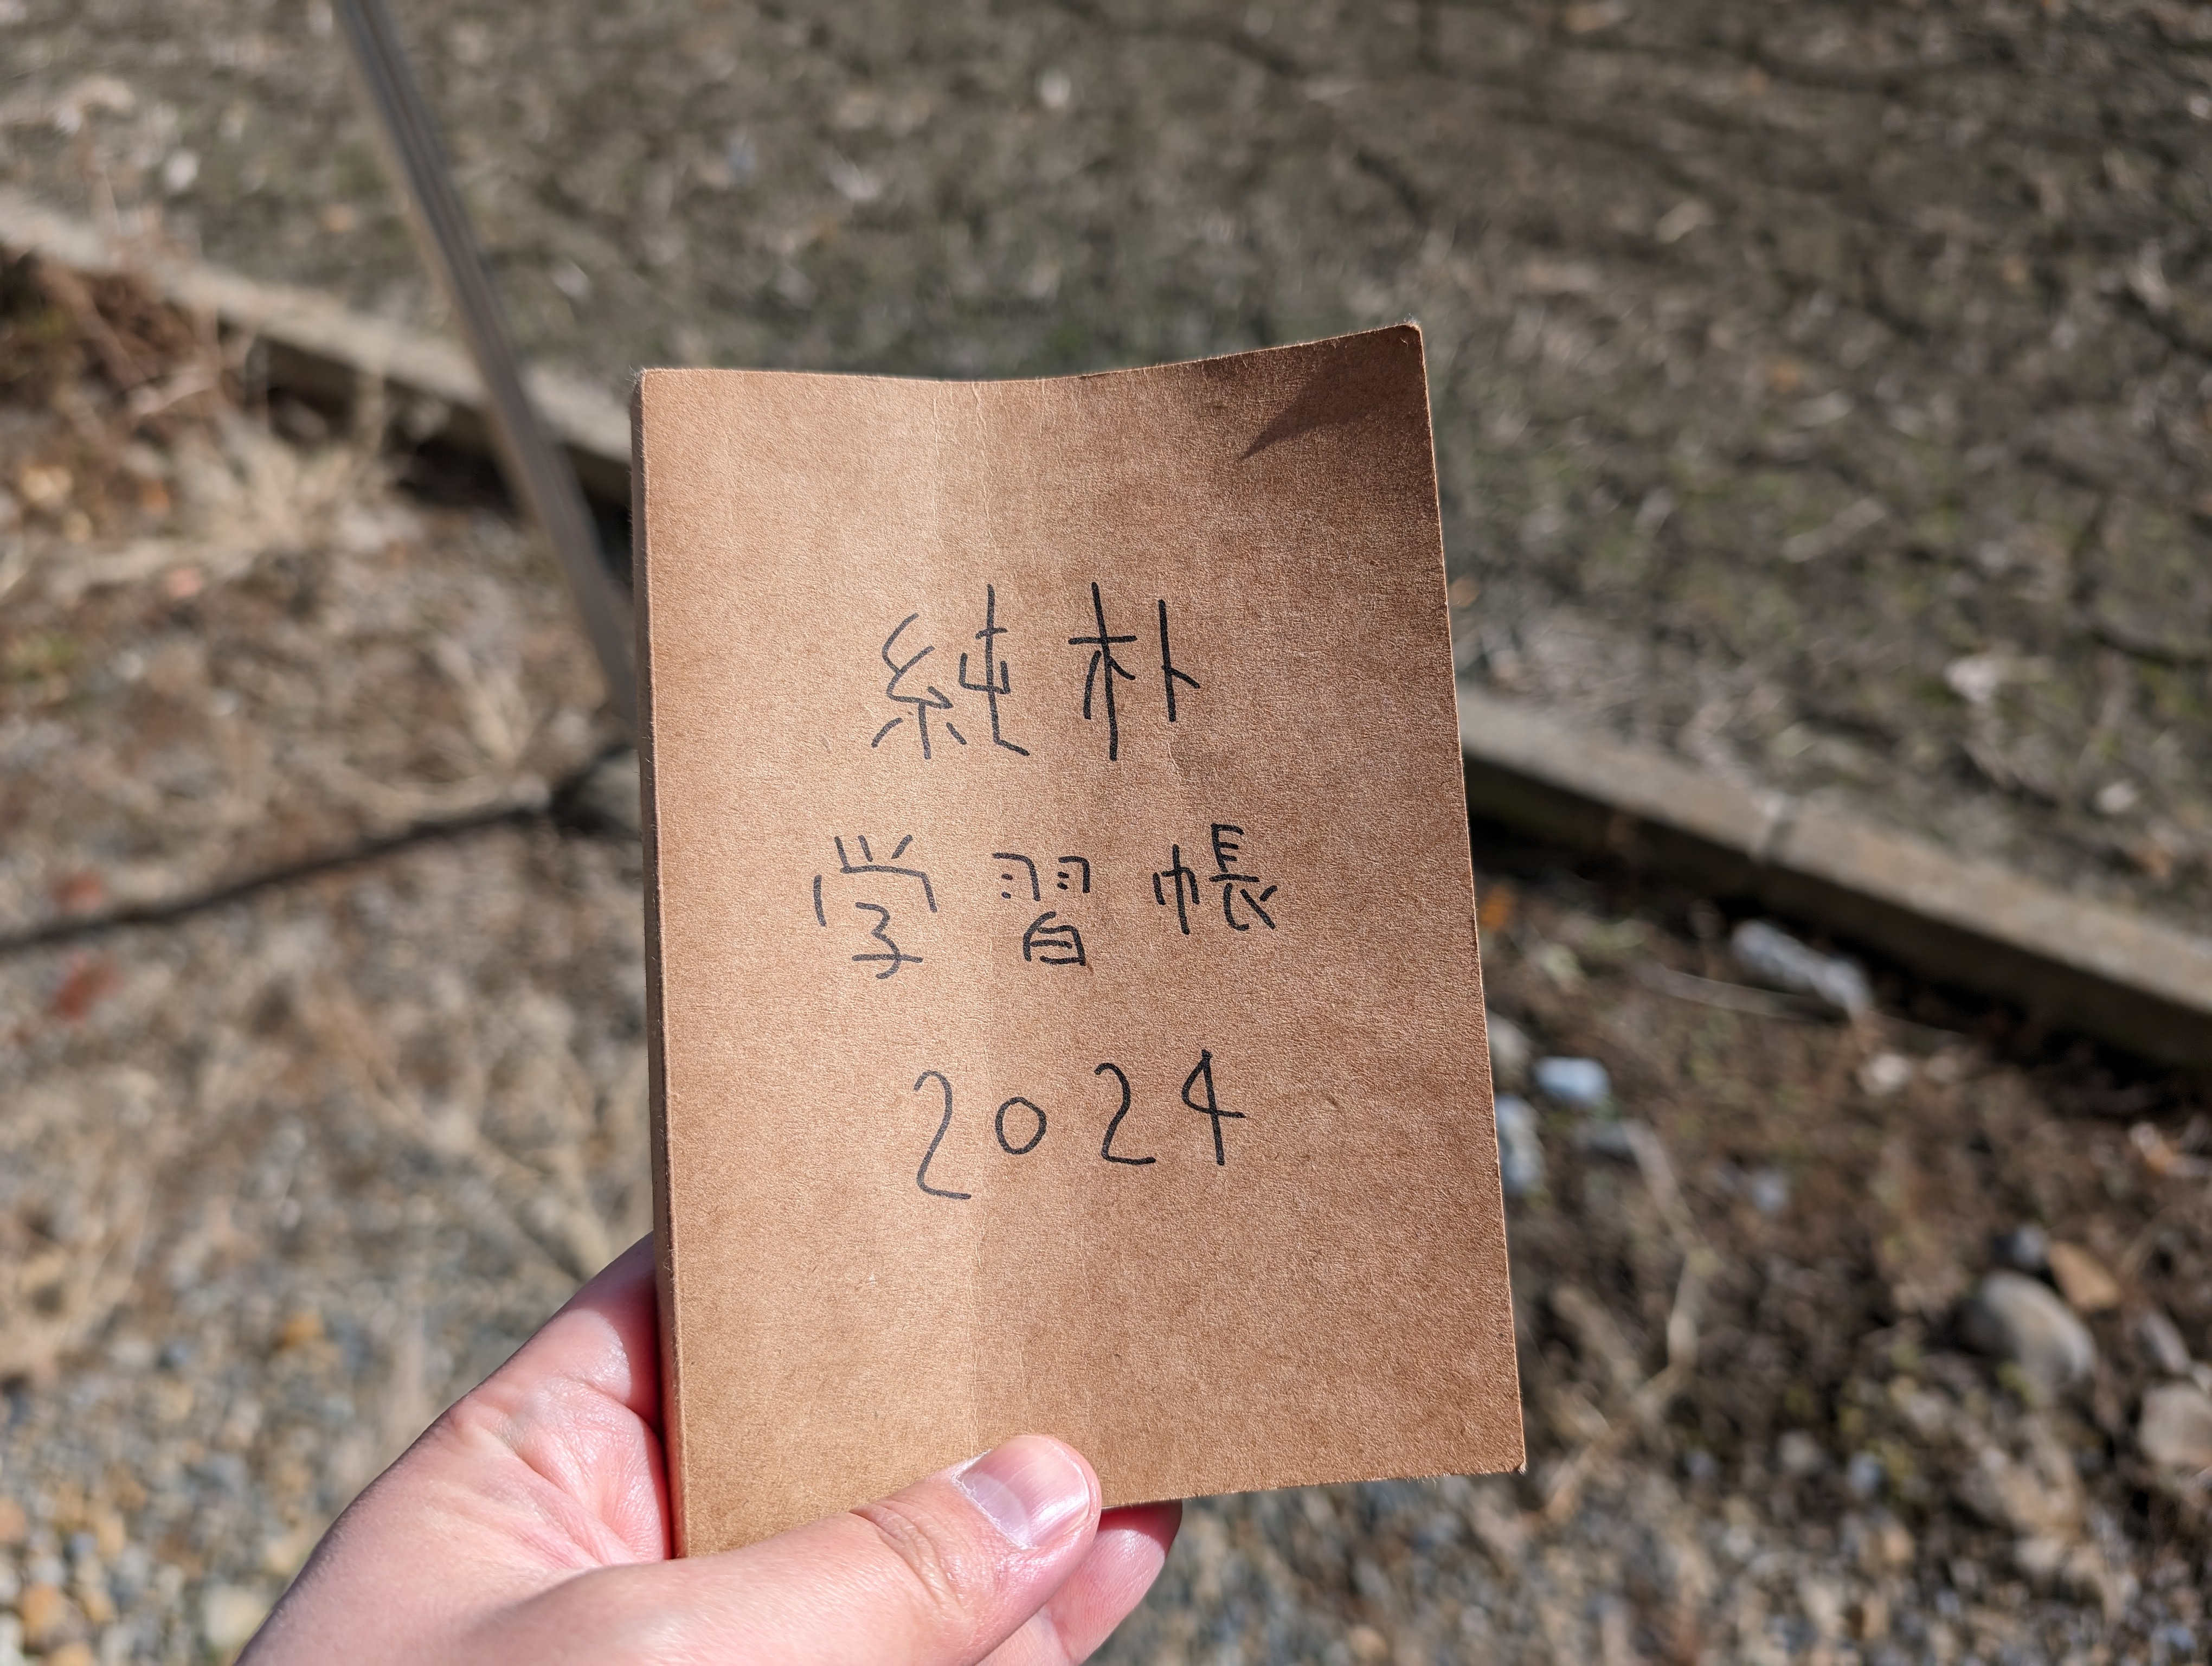 純朴
学習帳
2024